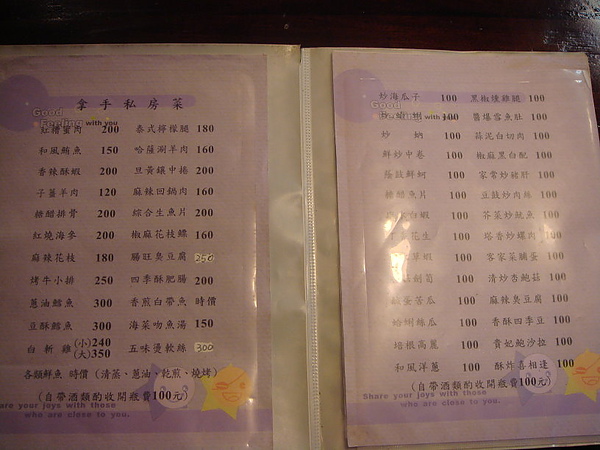 拿手私房菜
Good
Feeling with you
紅糟蛋肉 200 泰式檸檬腿 180
和風鮪魚 150 哈薩涮羊肉 160
香辣酥蝦 200 豆黃鑲中捲 200
子薑羊肉 120 麻辣回鍋肉 160
糖醋排骨 200 綜合生魚片 200
紅燒海參 200 椒麻花枝鰾 160
麻辣花枝 180 腸旺臭豆腐 250
烤牛小排 250 四季酥肥腸 200
蔥油鱈魚 300 香煎白帶魚 時價
豆酥鱈魚 300 海菜吻魚湯 150
白斬雞 (小)240 (大)350 五味燙軟絲 300
各類鮮魚 時價 (清蒸、蔥油、乾煎、燒烤)
(自帶酒類酌收開瓶費100元)
Share your joys with those
who are close to you.
Good
炒海瓜子 100 黑椒燻雞腿 100
Feeling with you
100 醬爆雪魚肚 100
炒 100 蒜泥白切肉 100
鮮炒中卷 100 椒麻黑白配 100
蔭豉鮮蚵 100 家常炒豬肝 100
糖醋魚片 100 豆豉炒肉絲 100
白蝦 100 芥菜炒魷魚 100
花生 100 塔香炒螺肉 100
草蝦 100 客家菜脯蛋 100
劍筍 100 清炒杏鮑菇 100
鹹蛋苦瓜 100 麻辣臭豆腐 100
蛤蜊絲瓜 100 香酥四季豆 100
培根高麗 100 貴妃鮑沙拉 100
和風洋蔥 100 酥炸喜相逢 100
(自帶酒類酌收開瓶費100元)
Share your joys with those
who are close to you.